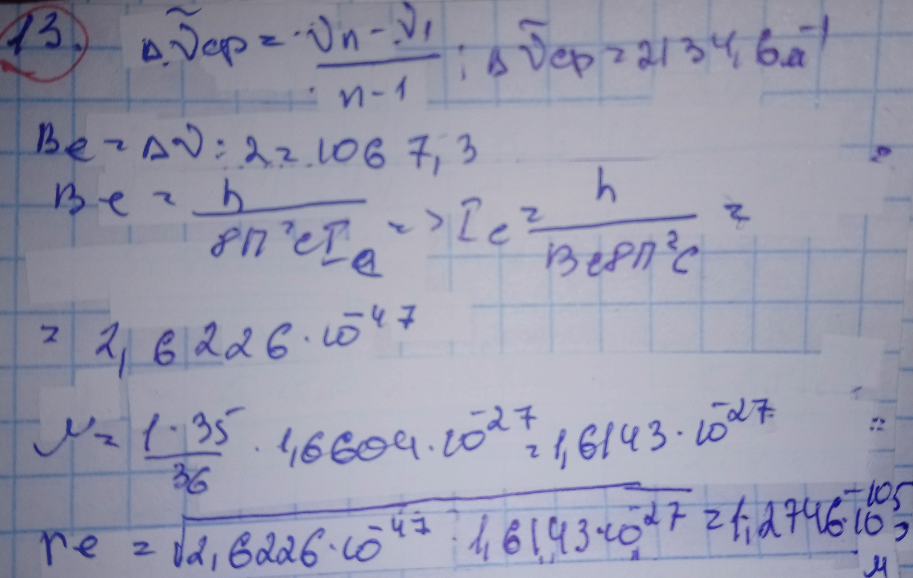 13. Δν̃ср = (νn - ν1)/(n-1) ; Δν̃ср = 2134,6 м⁻¹
Be = Δν : 2 = 1067,3
Be = h/(8π²cIe) => Ie = h/(Be8π²c) =
= 2,6226·10⁻⁴⁷
μ = (1·35)/36 · 1,6604·10⁻²⁷ = 1,6143·10⁻²⁷
re = √(2,6226·10⁻⁴⁷ · 1,6143·10⁻²⁷) = 1,2746·10⁻¹⁰⁵, м